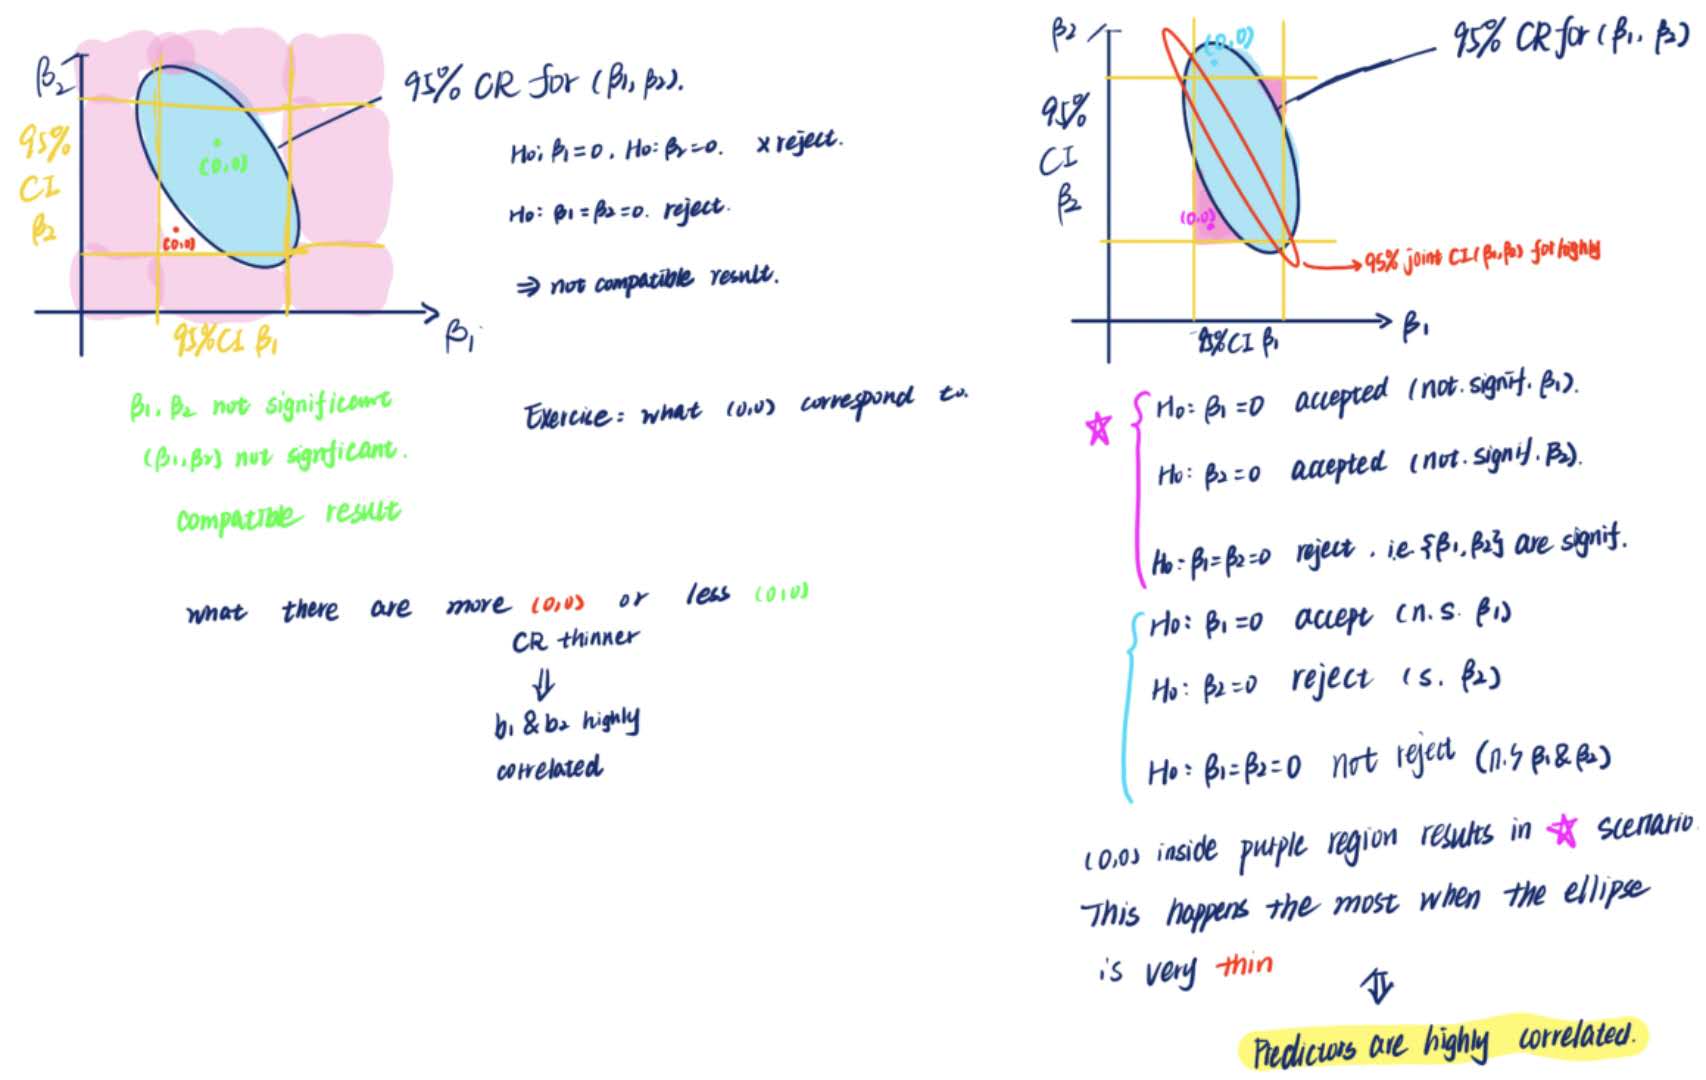 β₂
95%
CI
β₂
(0,0)
(0,0)
95% CI β₁
β₁
95% CR for (β₁, β₂).
H₀: β₁=0, H₀: β₂=0. x reject.
H₀: β₁=β₂=0. reject.
⇒ not compatible result.
β₁, β₂ not significant
(β₁,β₂) not signficant.
compatible result
Exercise: what (0,0) correspond to.
what there are more (0,0) or less (0,0)
CR thinner
⇓
b₁ & b₂ highly
correlated
β₂
95%
CI
β₂
(0,0)
(0,0)
95% CI β₁
β₁
95% CR for (β₁, β₂)
95% joint CI (β₁,β₂) for highly
☆
H₀: β₁=0 accepted (not. signif. β₁).
H₀: β₂=0 accepted (not. signif. β₂).
H₀: β₁=β₂=0 reject, i.e. {β₁,β₂} are signif.
H₀: β₁=0 accept (n.s. β₁)
H₀: β₂=0 reject (s. β₂)
H₀: β₁=β₂=0 not reject (n.s β₁&β₂)
(0,0) inside purple region results in ☆ scenario.
This happens the most when the ellipse
is very thin
⇕
Predictors are highly correlated.